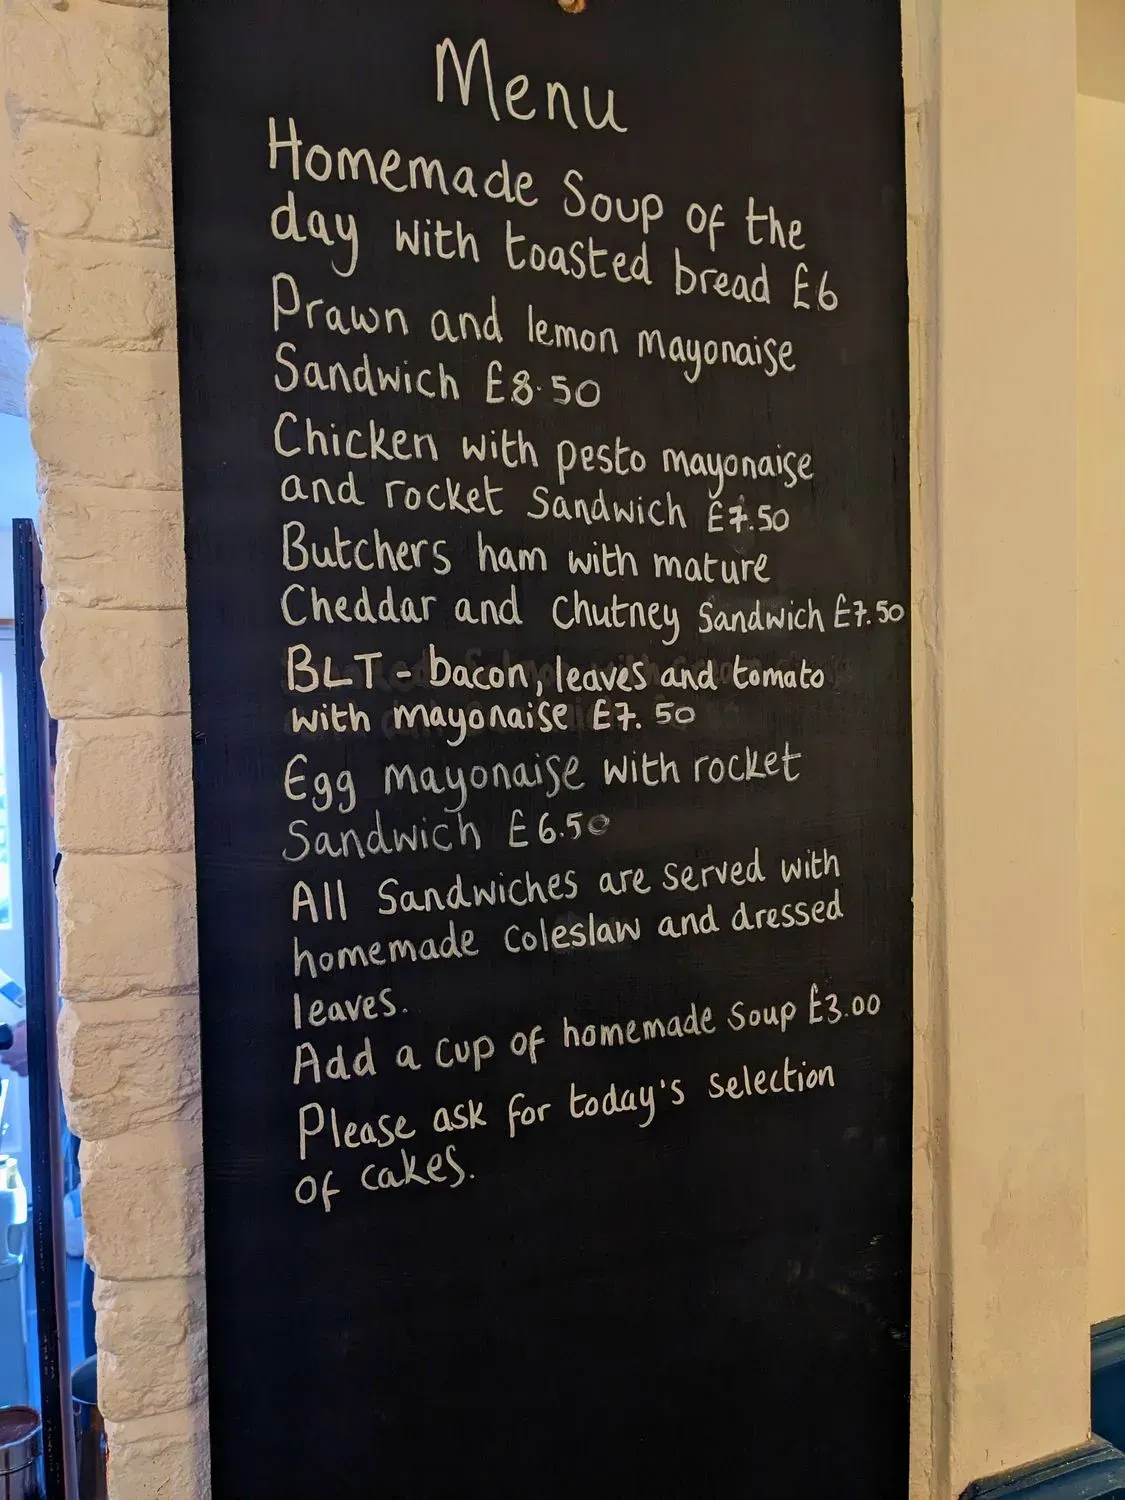 Menu
Homemade Soup of the
day with toasted bread £6
Prawn and lemon mayonaise
Sandwich £8.50
Chicken with pesto mayonaise
and rocket Sandwich £7.50
Butchers ham with mature
Cheddar and Chutney Sandwich £7.50
BLT - bacon, leaves and tomato
with mayonaise £7.50
Egg mayonaise with rocket
Sandwich £6.50
All Sandwiches are served with
homemade coleslaw and dressed
leaves.
Add a cup of homemade soup £3.00
Please ask for today's selection
of cakes.